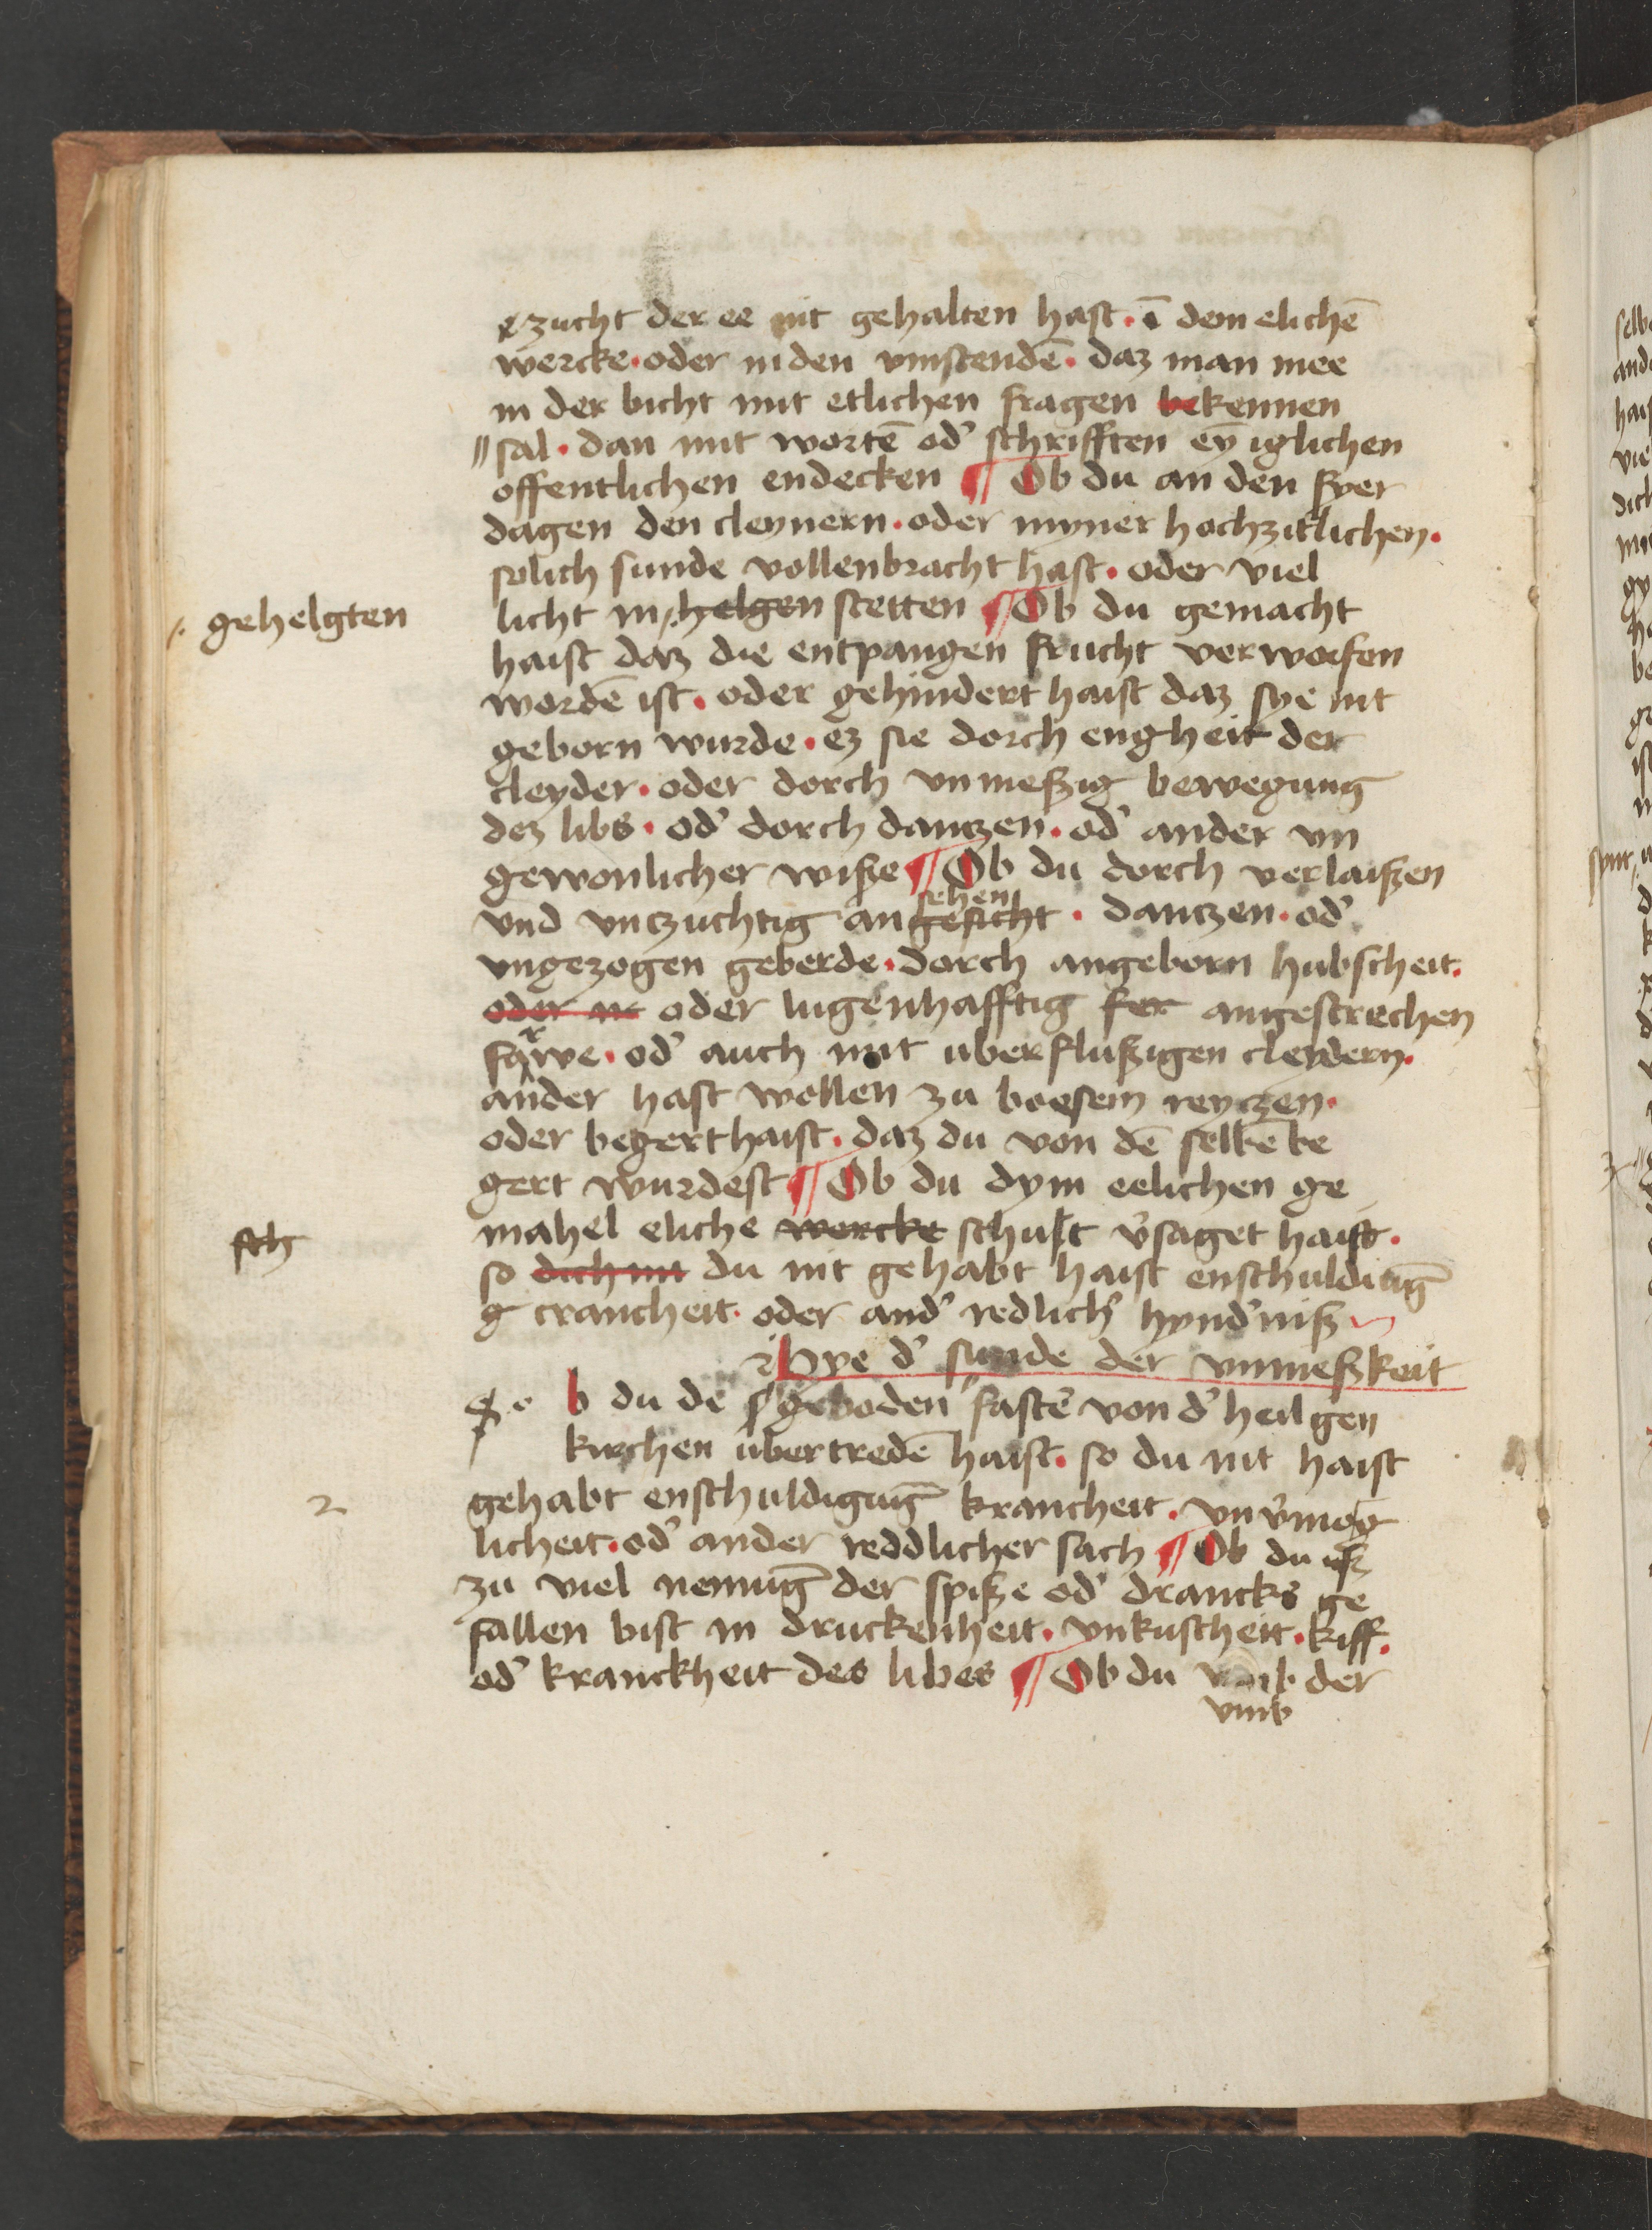 zucht der ee nit gehalten hast · ī dem elichē
wercke · oder in den vmstendē · daz man mee
in der bicht mit etlichen fragen bekennen
sal · dan mit wortē od' schrifften eȳ iglichen
offentlichen endecken ¶ Ob du an den fyer
dagen den cleynern · oder mynner hochzitlichen ·
solich sunde vollenbracht hast · oder viel
gehelgten
licht in helgen stetten ¶ Ob du gemacht
haist daz die entpangen frucht verworfen
wordē ist · oder gehindert haist daz sye nit
geborn wurde · ez sie dorch engheit der
cleyder · oder dorch vnmeßig bewegung
dez libs · od' dorch dantzen · od' ander vn
gewonlicher wiße ¶ Ob du dorch verlaißen
sehen
vnd vnczuchtig angesicht · dantzen · od'
vngezogen geberde · dorch angeborn hubscheit ·
oder oder lugenhafftig fer angestrechen
farwe · od' auch mit uberflußigen cleydern ·
ander hast wollen zu boesem reyczen ·
oder begert haist · daz du von dē selbē be
gert wurdest ¶ Ob du dym eelichen ge
sch
mahel eliche wercke schult v'saget haist ·
so dich nit du nit gehabt haist enschuldiūg
g crancheit · oder and' redlich' hynd'niß
Hye d' sunde der vnmeßkeit
b du de geboden fastē von d' heilgen
kirchen ubertredē haist · so du nit haist
2
gehabt enschuldigūg krancheit · vnv'mog
licheit · od' ander reddlicher sach ¶ Ob du uß
zu viel nemūg der spiße od' drancks ge
fallen bist in druckenheit · vnkuscheit · kiff ·
od' kranckheit des libes ¶ Ob du vmb der
vmb